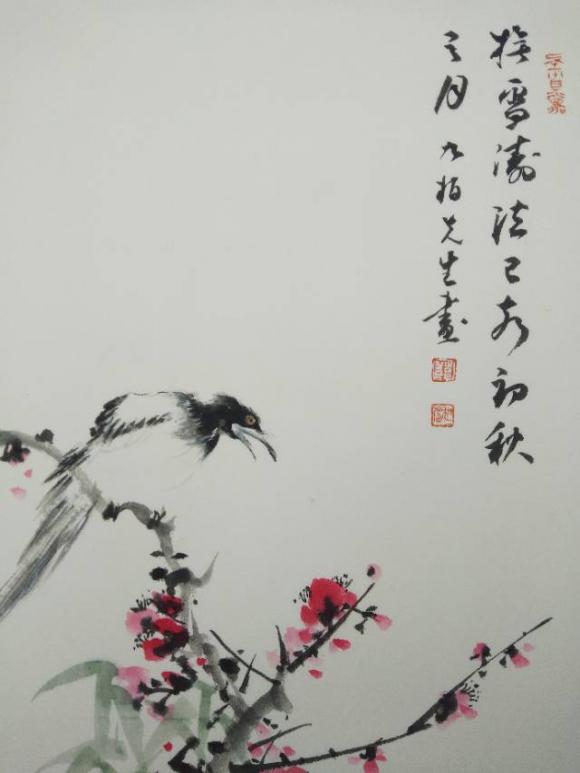 雪濤法己亥初秋
之月九柏先生畫